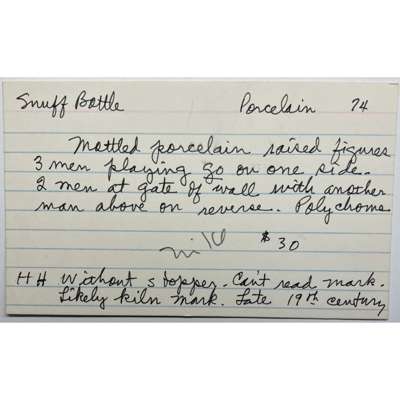 Snuff Bottle Porcelain 74
Mottled porcelain raised figures
3 men playing go on one side.
2 men at gate of wall with another
man above on reverse. Polychome
$30
HH Without stopper. Can't read mark.
Likely kiln mark. Late 19th century